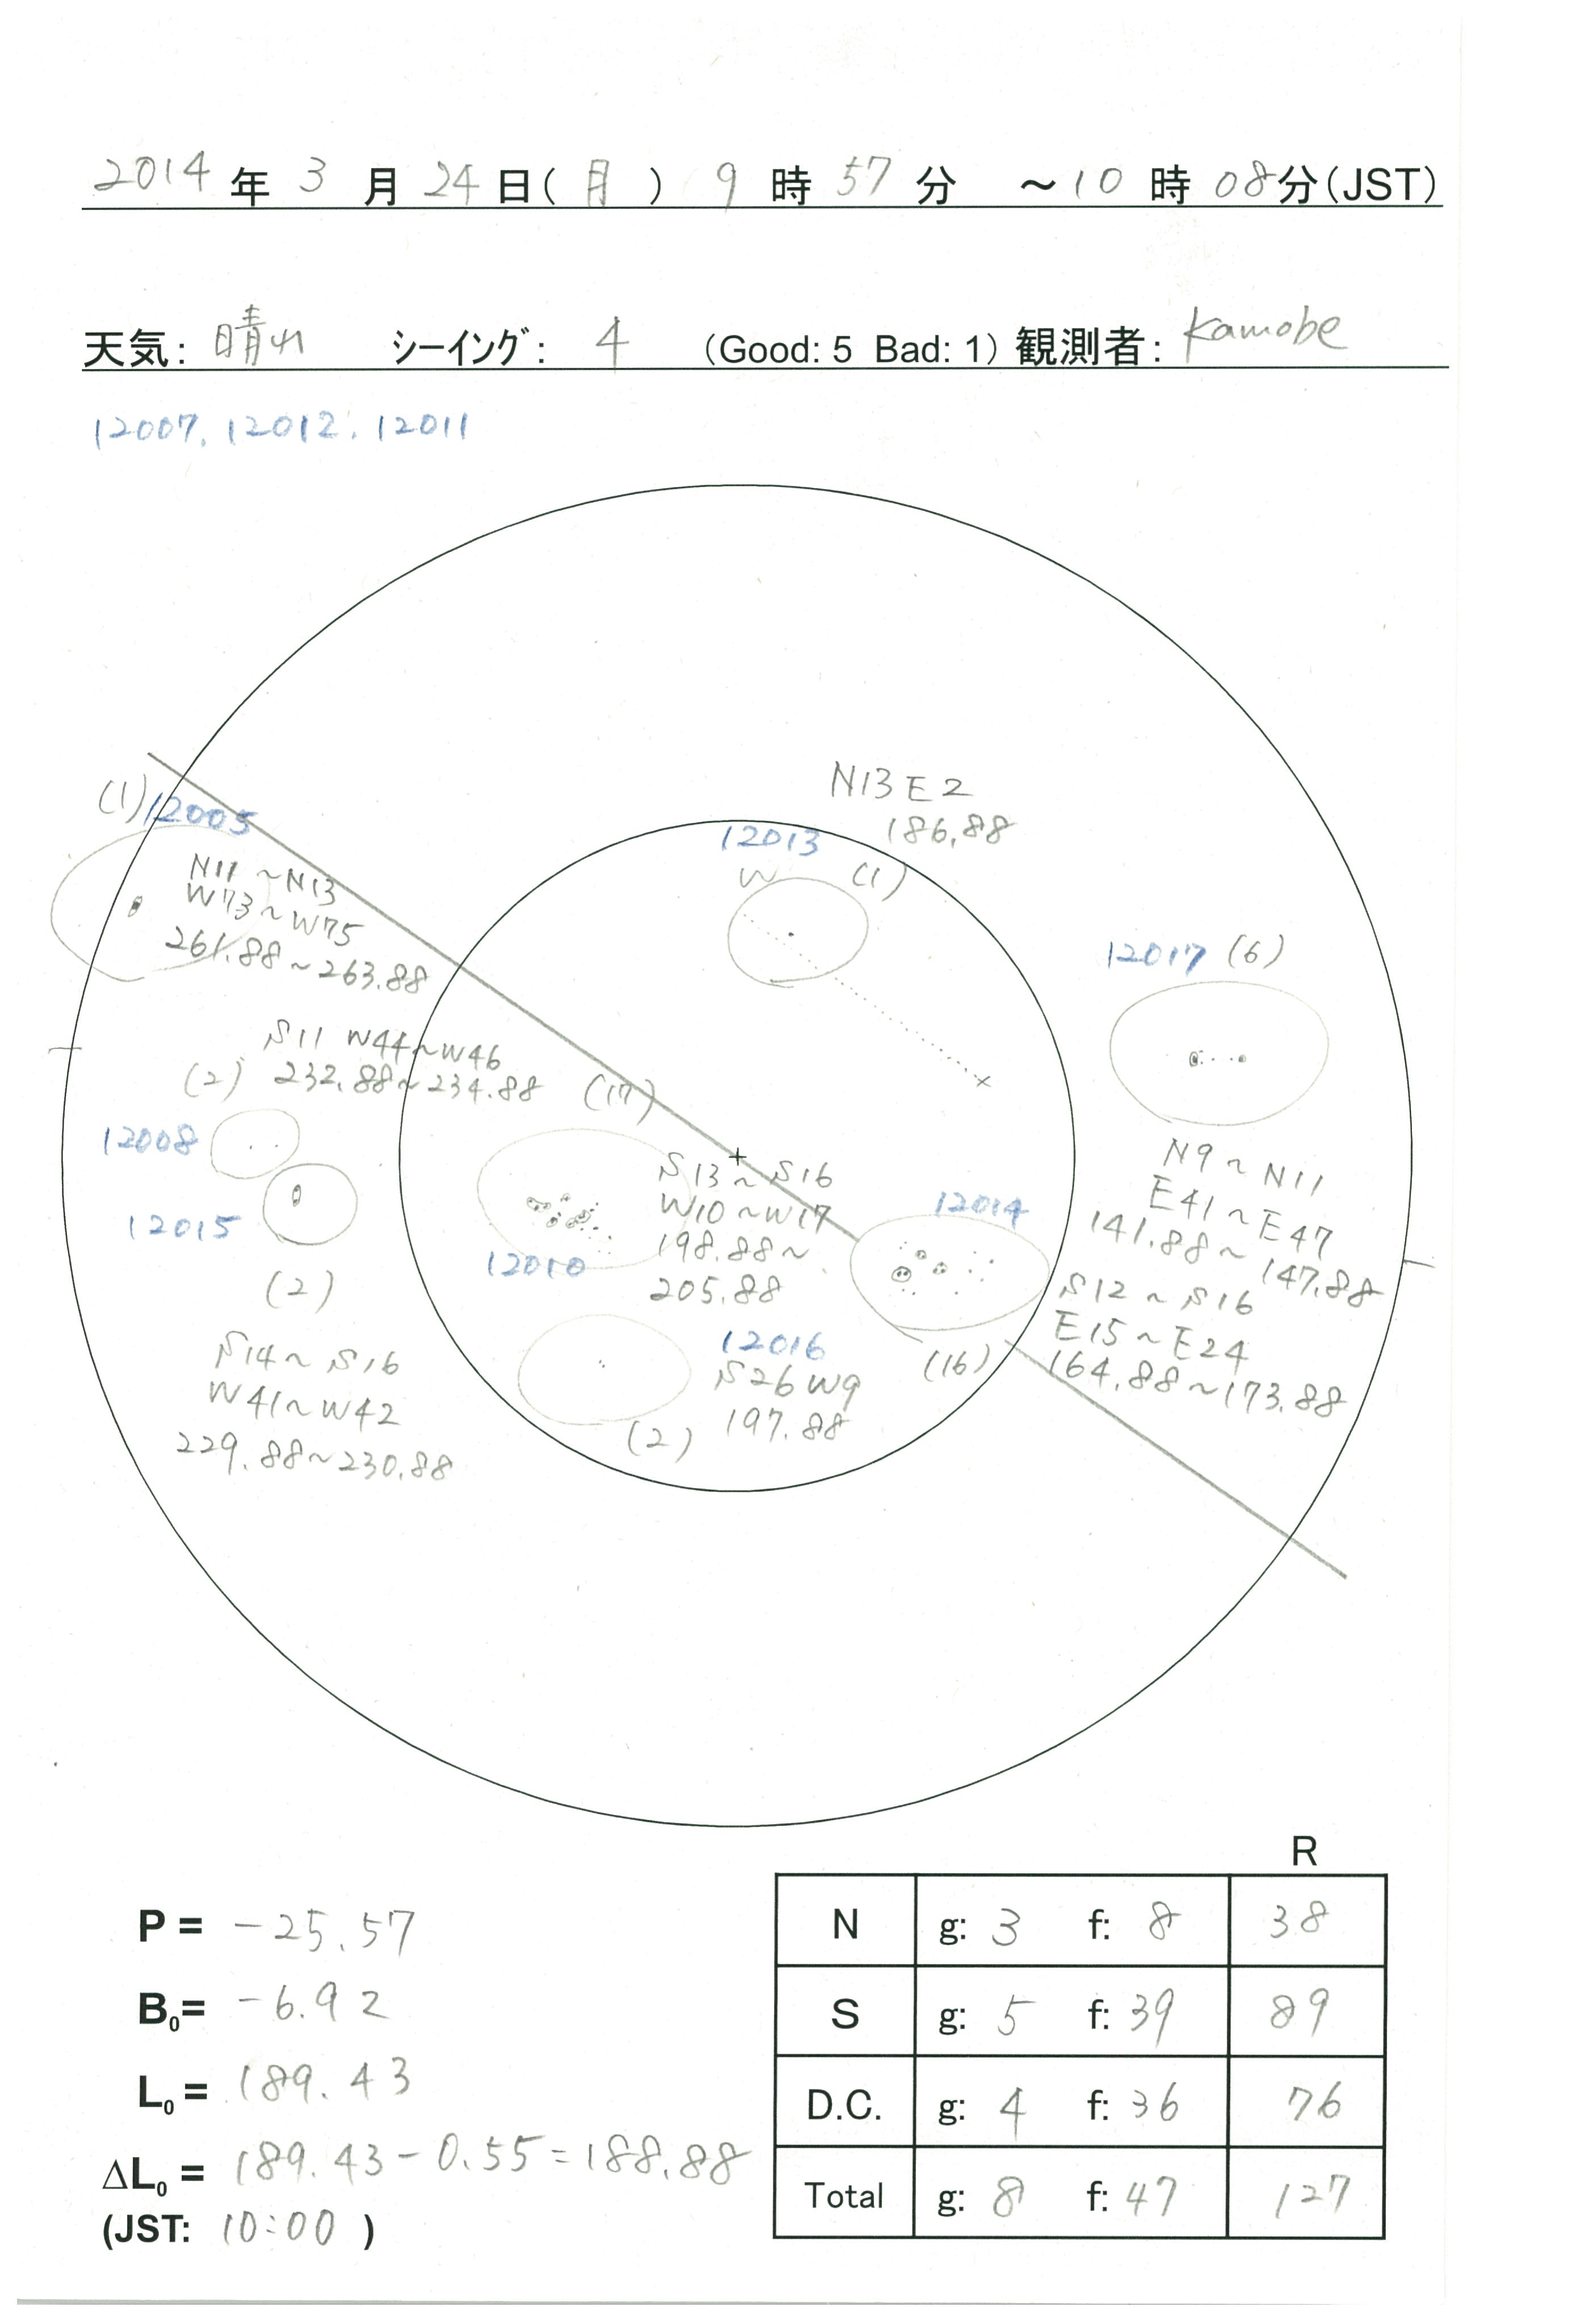 2014 年 3 月 24 日(月) 9 時 57 分 ～10 時 08分(JST)
天気: 晴れ ｼｰｲﾝｸﾞ: 4 (Good: 5 Bad: 1) 観測者: Kamobe
12007. 12012. 12011
N13 E2
186.88
(1) 12005
12013
W (1)
N11 ~ N13
W73 ~ W75
261.88 ~ 263.88
12017 (6)
S11 W44 ~ W46
(2) 232.88 ~ 234.88 (17)
12008
N9 ~ N11
E41 ~ E47
141.88 ~ 147.88
S13 ~ S16
W10 ~ W17
198.88 ~
205.88
12014
12015
12010
(2)
S12 ~ S16
E15 ~ E24
164.88 ~ 173.88
(16)
S14 ~ S16
W41 ~ W42
229.88 ~ 230.88
12016
S26 W9
(2) 197.88
R
P = -25.57
N g: 3 f: 8 38
B0= -6.92
S g: 5 f: 39 89
L0 = 189.43
D.C. g: 4 f: 36 76
ΔL0 = 189.43 - 0.55 = 188.88
Total g: 8 f: 47 127
(JST: 10:00 )